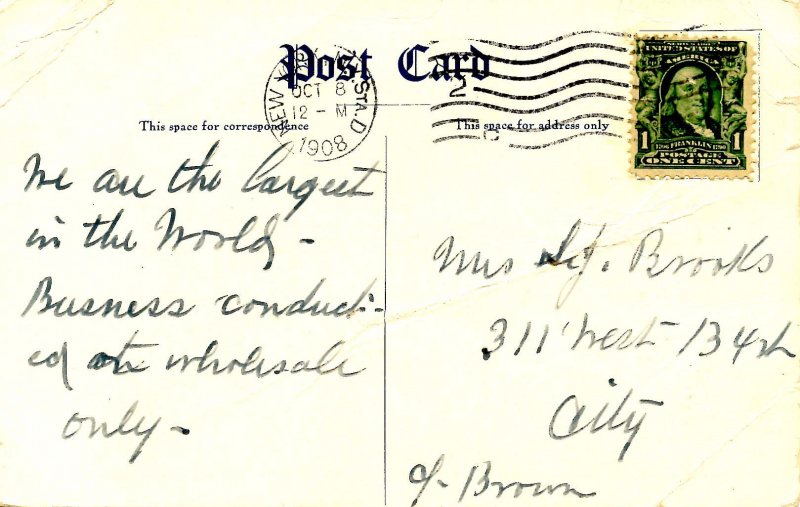 Post Card
NEW YORK, N.Y. STA. D
OCT 8
12 - M
1908
2
C
UNITED STATES OF
AMERICA
1 1706 FRANKLIN 1790 1
POSTAGE
ONE CENT
This space for correspondence
This space for address only
We are the largest
in the World,
Busness conducti-
ed at wholesale
only -
Mrs Brooks
311 West 134th
City
c/- Brown